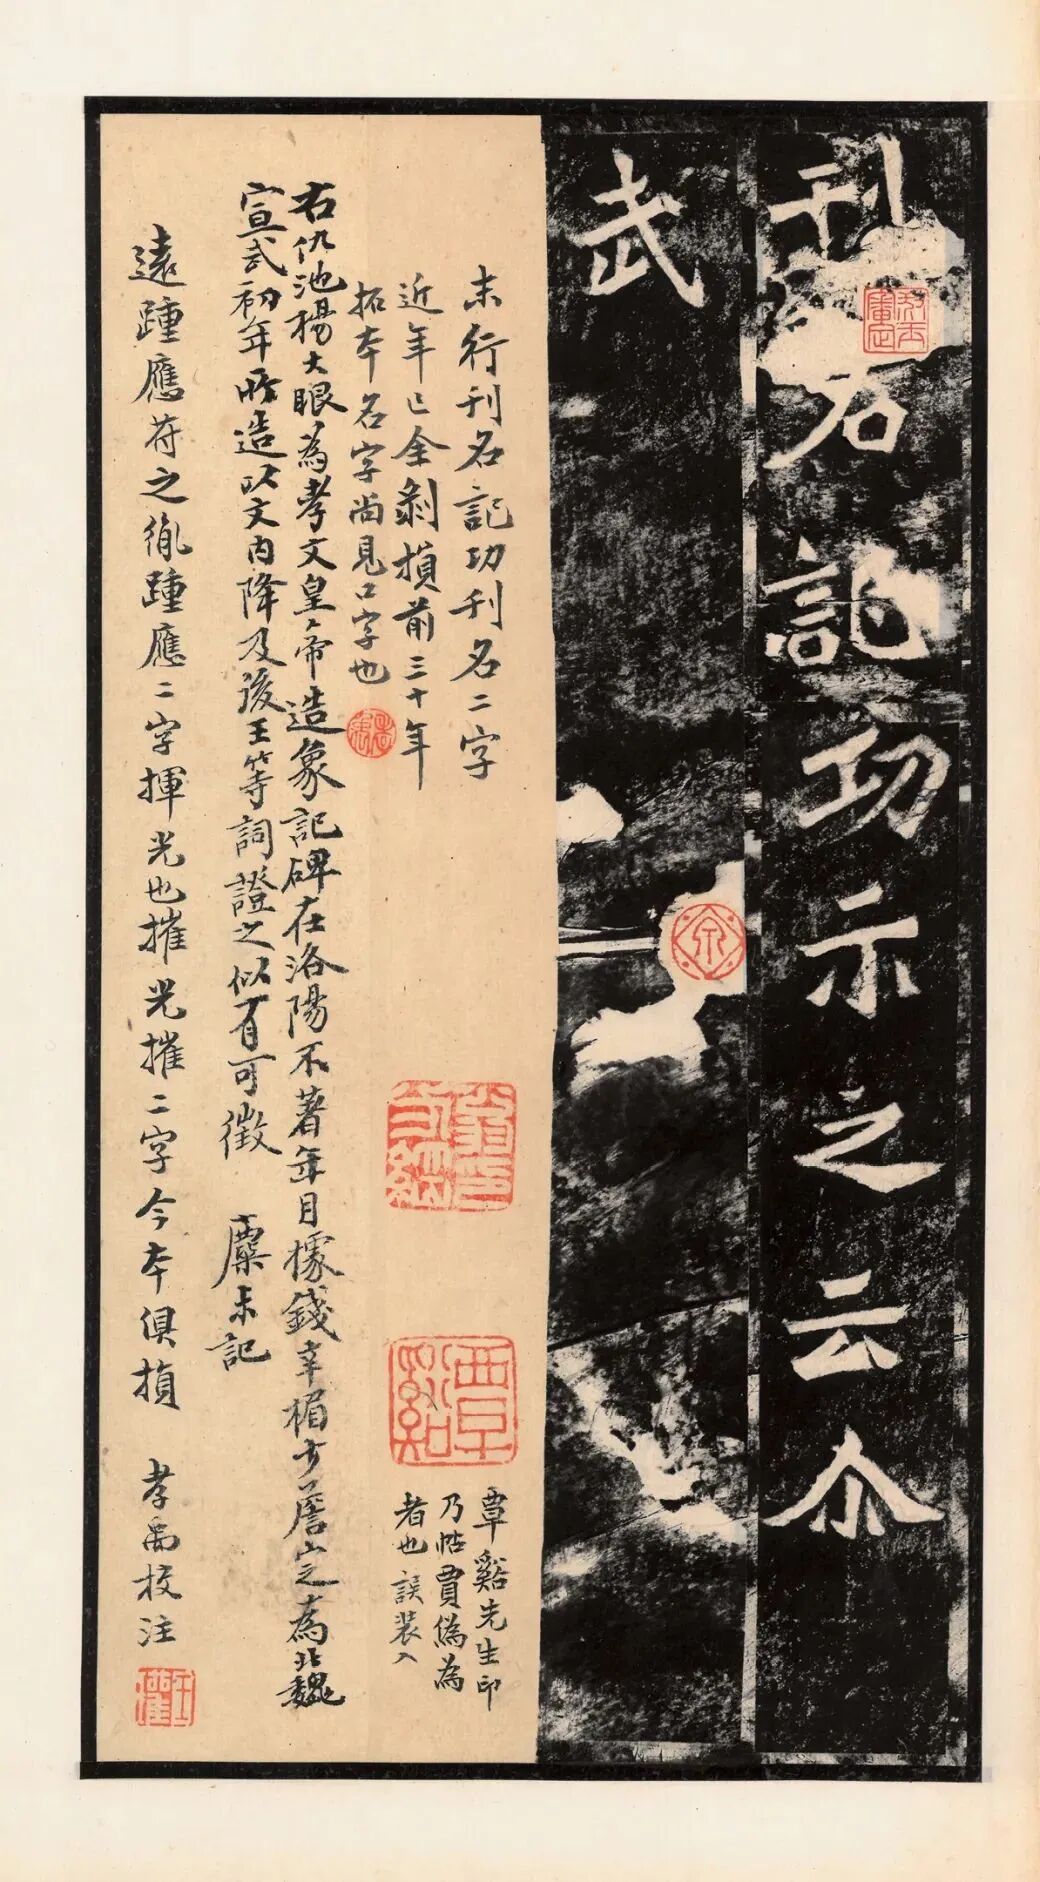 刊石記功示之云尒
武
末行刊名記功刊名二字
近年已全剝損前三十年
拓本名字尚見口字也
覃谿先生印
乃帖賈僞為
者也誤裝入
右仇池楊大眼為孝文皇帝造象記碑在洛陽不著年月據錢辛楣少詹定之為北魏
宣武初年所造以文內降及後王等詞證之似有可徵 麋朱記
遠踵應符之胤踵應二字揮光也摧光摧二字今本俱損 孝禹校注
覃谿